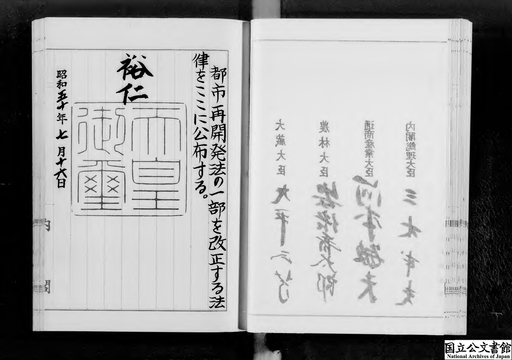 都市再開発法の一部を改正する法
律をここに公布する。
裕仁
天皇御璽
昭和五十年七月十六日
内閣
内閣総理大臣
三木武夫
通商産業大臣
河本敏夫
農林大臣
安倍晋太郎
大蔵大臣
大平正芳
国立公文書館
National Archives of Japan